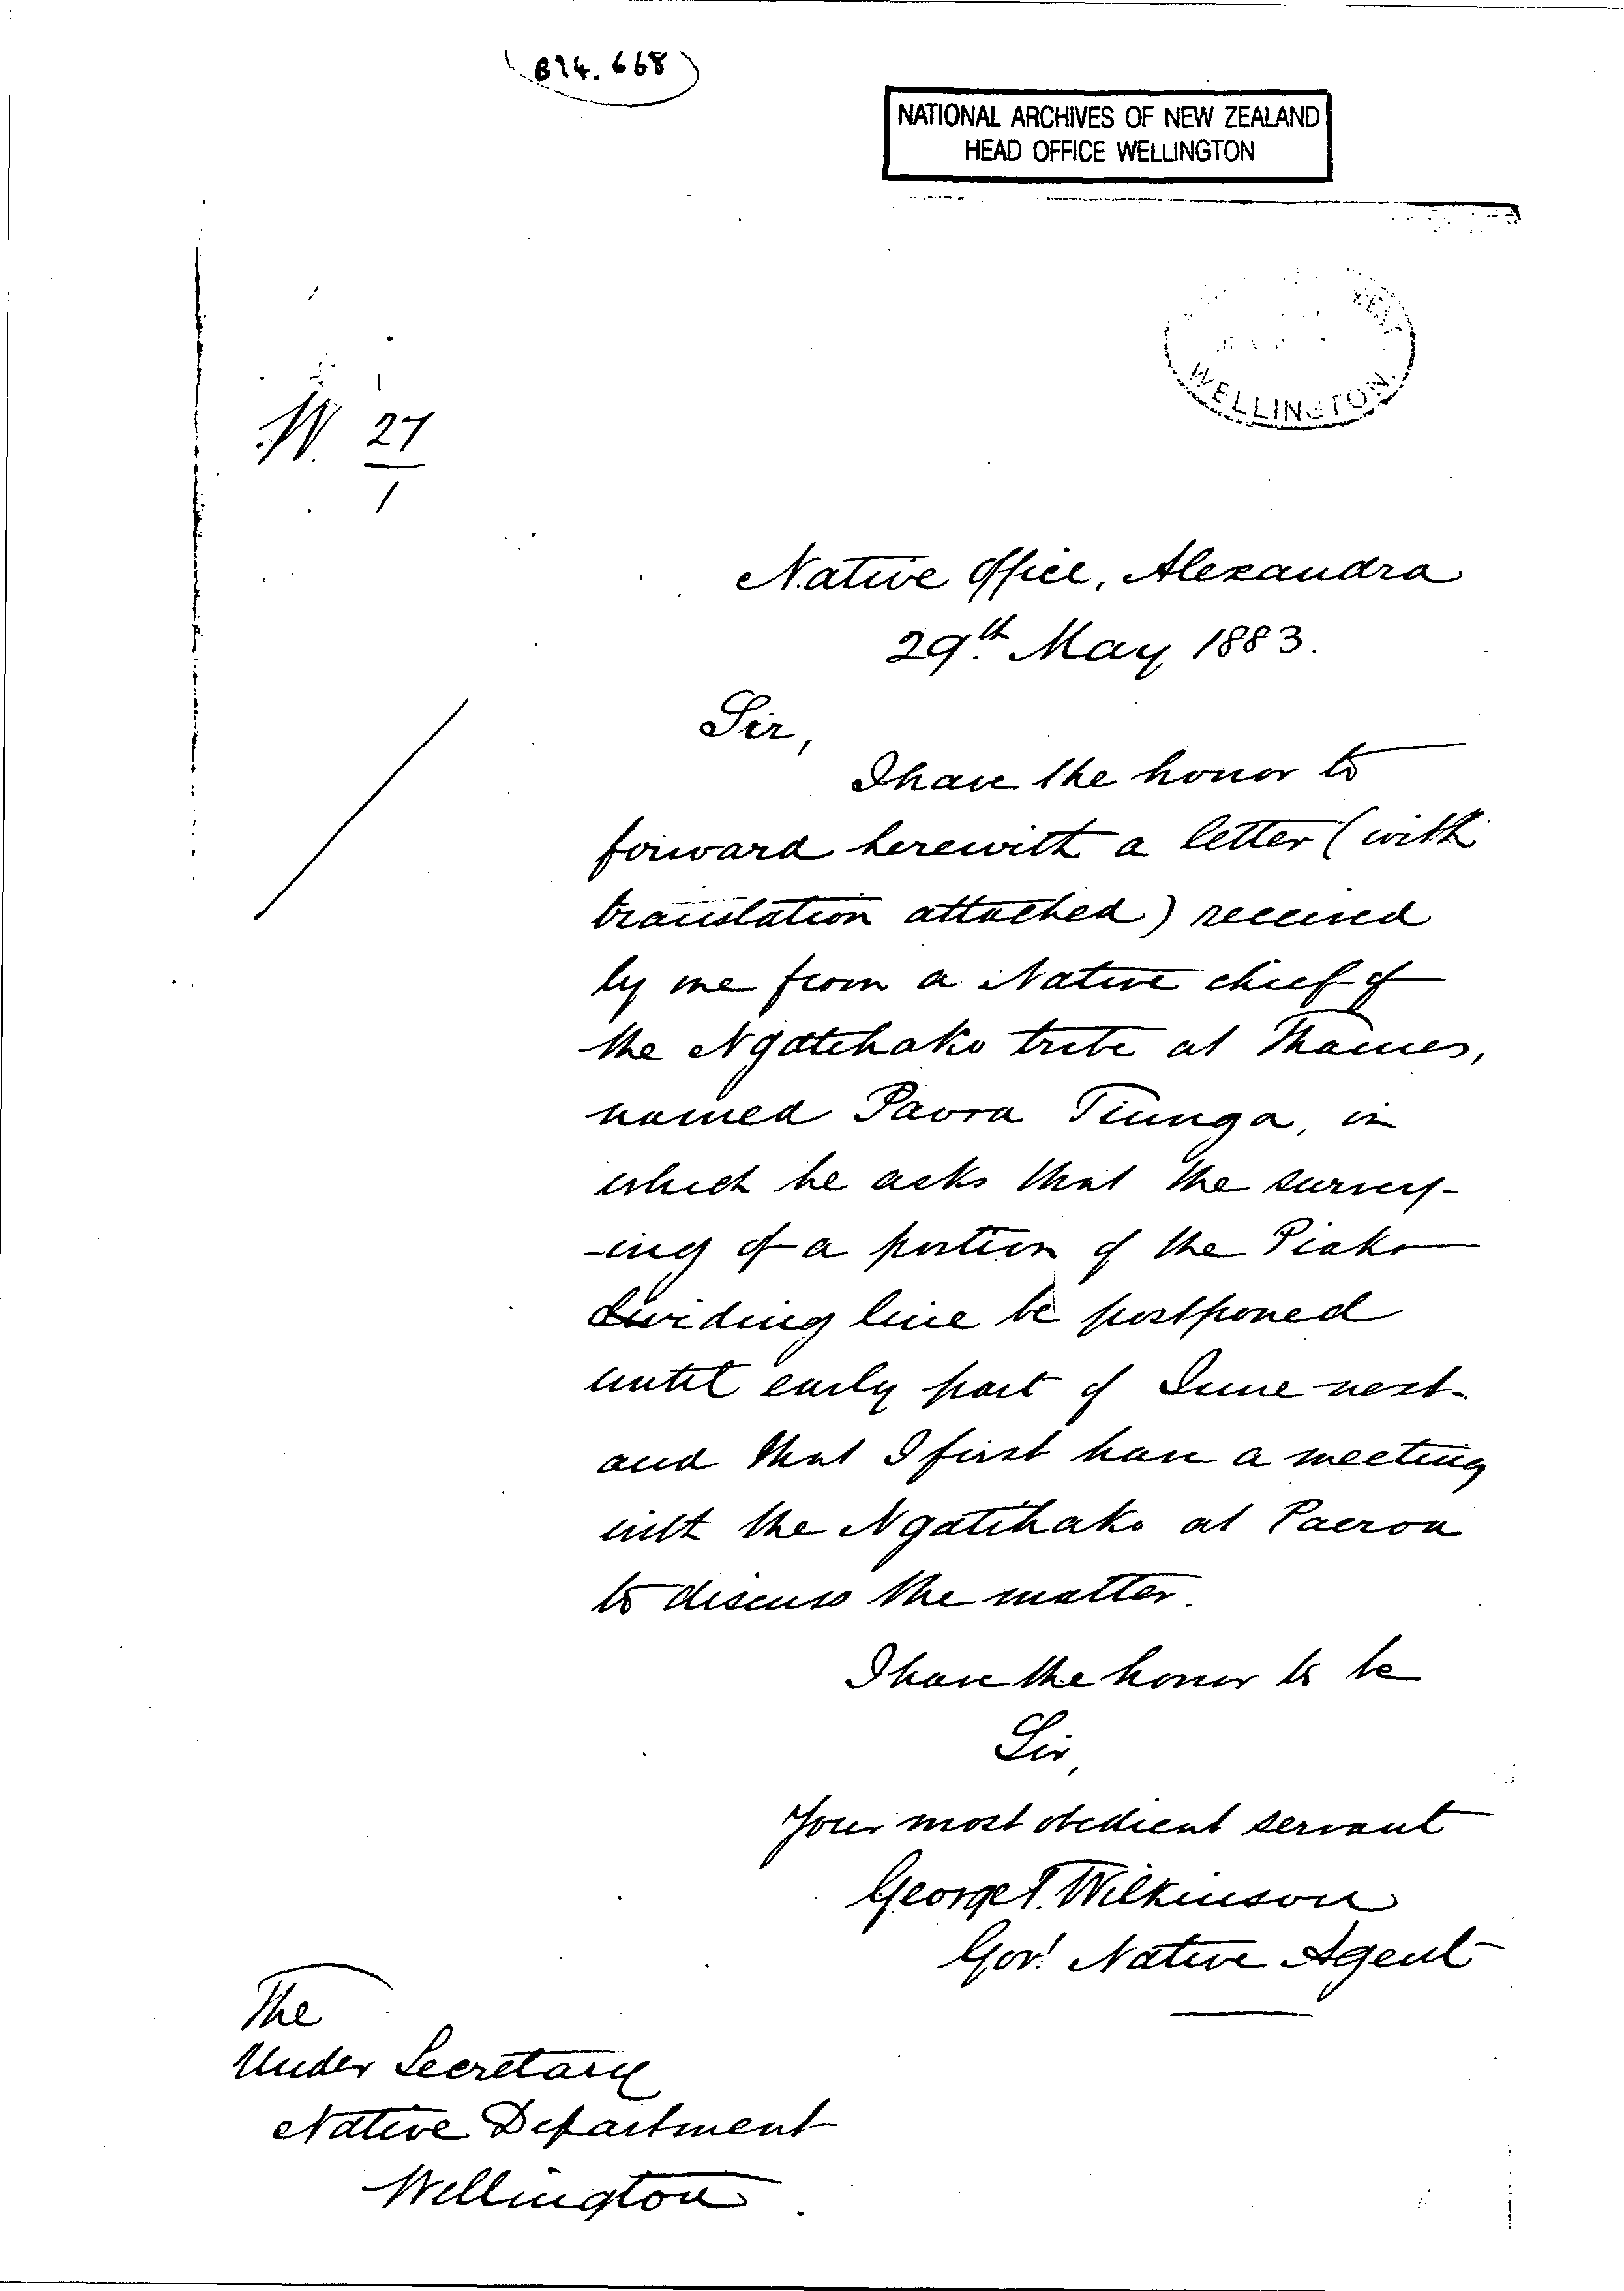 (B94.668)
NATIONAL ARCHIVES OF NEW ZEALAND
HEAD OFFICE WELLINGTON
WELLINGTON.
27
1
Native Office, Alexandra
29th May 1883.
Sir,
I have the honor to
forward herewith a letter (with
translation attached) received
by me from a Native chief of
the Ngatihako tribe at Thames,
named Paora Tiunga, in
which he asks that the survey-
-ing of a portion of the Piako
dividing line be postponed
until early part of June next
and that I first have a meeting
with the Ngatihako at Paeroa
to discuss the matter.
I have the honor to be
Sir,
Your most obedient servant
George T. Wilkinson
Govt Native Agent
The
Under Secretary
Native Department
Wellington